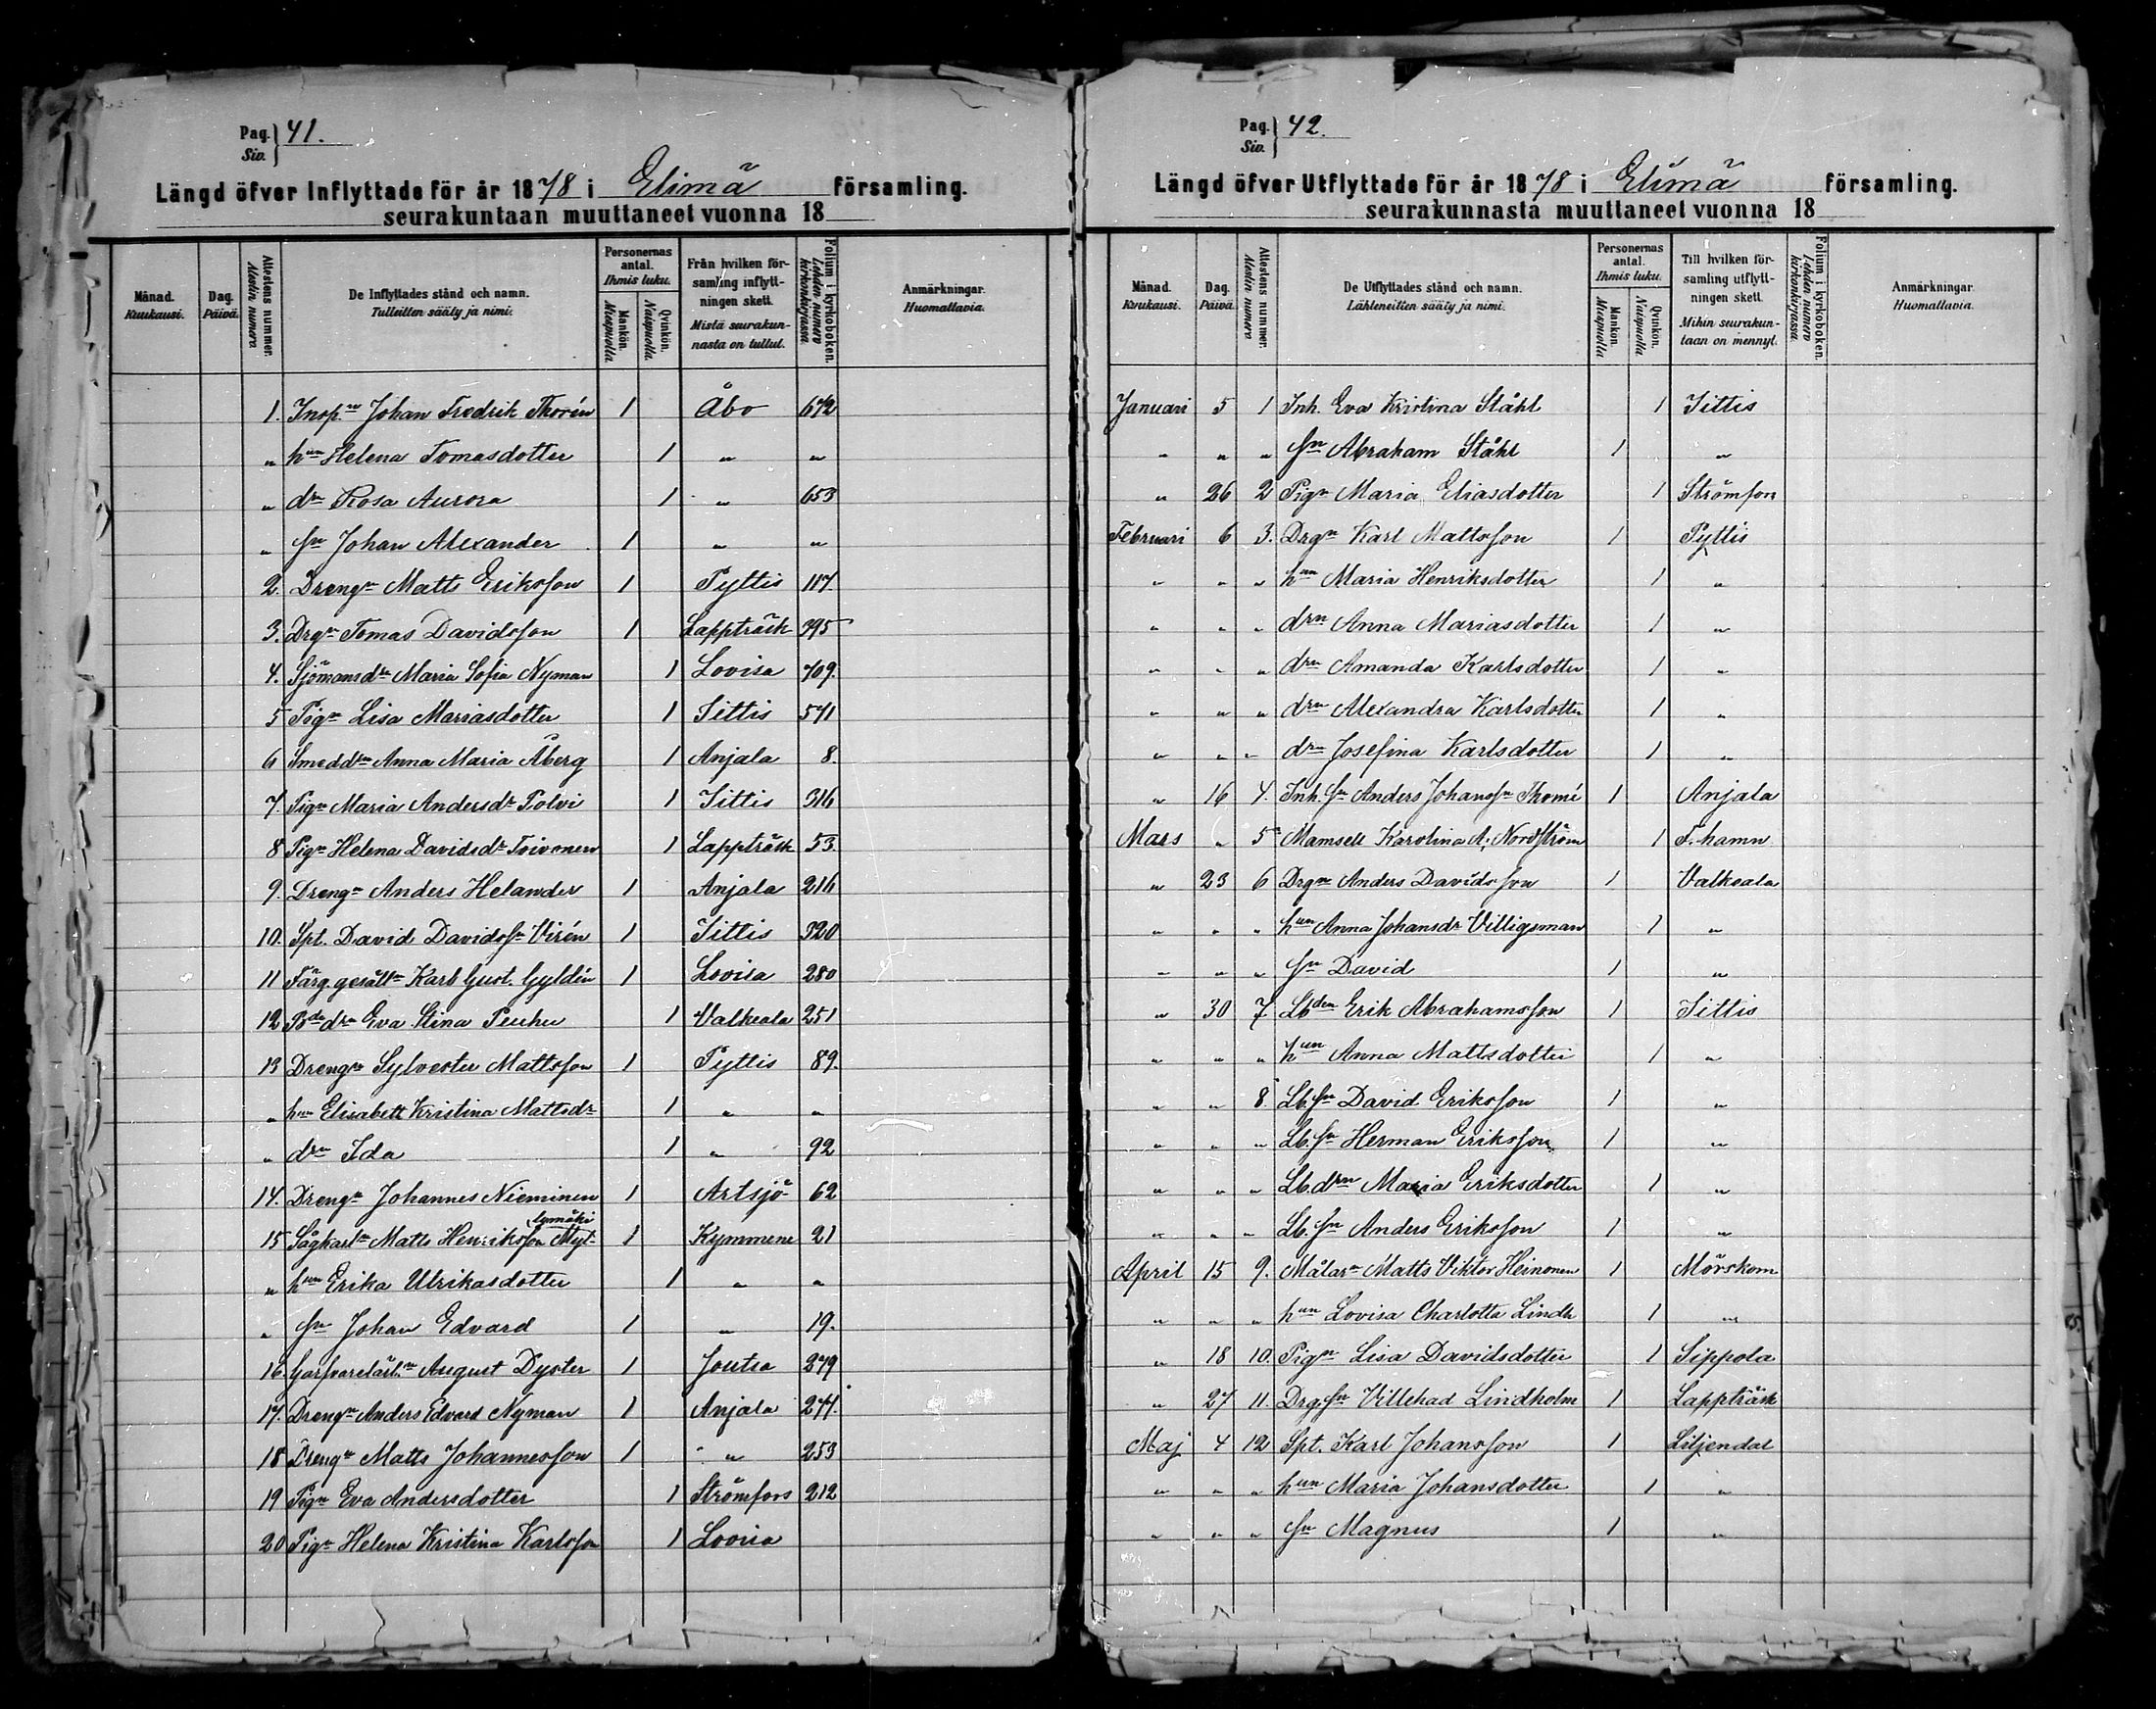 Pag. Siv. 41.
Längd öfver Inflyttade för år 1878 i Elimä församling.
seurakuntaan muuttaneet vuonna 18
Månad. Kuukausi. Dag. Päivä. Attestens nummer. Nestin numero. De Inflyttades stånd och namn. Tulleitten sääty ja nimi. Personernas antal. Ihmis luku. Mankön. Miespuolta. Qvinkön. Naispuolta. Från hvilken församling inflyttningen skett. Mistä seurakunnasta on tullut. Folium i kyrkoboken. Lehden numero kirkonkirjassa. Anmärkningar. Huomattavia.
1. Insp:n Johan Fredrik Thorén 1 Åbo 672
„ hun Helena Tomasdotter 1 „ „
„ drn Rosa Aurora 1 „ 653
„ sn Johan Alexander 1 „ „
2. Drengn Matts Eriksson 1 Pyttis 117.
3. Drgn Tomas Davidsson 1 Lappträsk 395
4. Sjömansdr Maria Sofia Nyman 1 Lovisa 709.
5 Pign Lisa Mariasdotter 1 Jittis 571
6 Smeddrn Anna Maria Åberg 1 Anjala 8.
7. Pign Maria Andersdr Polvi 1 Jittis 316
8 Pign Helena Davidsdr Toivonen 1 Lappträsk 53
9. Drengn Anders Helander 1 Anjala 216
10. Spt. David Davidssn Virén 1 Jittis 320
11 Färg.gesälln Karl Gust. Gyldén 1 Lovisa 280
12 Bdedrn Eva Stina Peuhu 1 Valkeala 251
13 Drengn Sylvester Mattsson 1 Pyttis 89.
„ hun Elisabett Kristina Mattsdr 1 „ „
„ drn Ida 1 „ 92
14. Drengn Johannes Nieminen 1 Artsjö 62
15 Sågkarln Matts Henriksson Myllymäki 1 Kymmene 21
„ hun Erika Ulrikasdotter 1 „ „
„ sn Johan Edvard 1 „ 19.
16. Garfvarelärl:n August Dyster 1 Joutsa 279
17. Drengn Anders Edvard Nyman 1 Anjala 277.
18 Drengn Matts Johannesson 1 „ 253
19 Pign Eva Andersdotter 1 Strömfors 212
20 Pign Helena Kristina Karlsson 1 Lovisa
Pag. Siv. 42.
Längd öfver Utflyttade för år 1878 i Elimä församling.
seurakunnasta muuttaneet vuonna 18
Månad. Kuukausi. Dag. Päivä. Attestens nummer. Nestin numero. De Utflyttades stånd och namn. Lähteneitten sääty ja nimi. Personernas antal. Ihmis luku. Mankön. Miespuolta Qvinkön. Naispuolta Till hvilken församling utflyttningen skett. Mihin seurakuntaan on mennyt. Folium i kyrkoboken. Lehden numero kirkonkirjassa. Anmärkningar. Huomattavia.
Januari 5 1 Inh. Eva Kristina Ståhl 1 Jittis
„ „ „ sn Abraham Ståhl 1 „
„ 26 2 Pign Maria Eliasdotter 1 Strömfors
Februari 6 3. Drgn Karl Mattsson 1 Pyttis
„ „ „ hun Maria Henriksdotter 1 „
„ „ „ drn Anna Mariasdotter 1 „
„ „ „ drn Amanda Karlsdotter 1 „
„ „ „ drn Alexandra Karlsdotter 1 „
„ „ „ drn Josefina Karlsdotter 1 „
„ 16 4. Inh. sn Anders Johanssn Thomé 1 Anjala
Mars „ 5 Mamsell Karolina A. Nordström 1 F.hamn
„ 23 6 Drgn Anders Davidsson 1 Valkeala
„ „ „ hun Anna Johansdr Villigsman 1 „
„ „ „ sn David 1 „
„ 30 7 Lbden Erik Abrahamsson 1 Jittis
„ „ „ hun Anna Mattsdotter 1 „
„ „ 8. Lb.sn David Eriksson 1 „
„ „ „ Lb.sn Herman Eriksson 1 „
„ „ „ Lb.drn Maria Eriksdotter 1 „
„ „ „ Lb.sn Anders Eriksson 1 „
April 15 9. Målarn Matts Viktor Heinonen 1 Mörskom
„ „ „ hun Lovisa Charlotta Lindh 1 „
„ 18 10. Pign Lisa Davidsdotter 1 Sippola
„ 27 11. Drg.sn Villehad Lindholm 1 Lappträsk
Maj 4 12 Spt. Karl Johansson 1 Liljendal
„ „ „ hun Maria Johansdotter 1 „
„ „ „ sn Magnus 1 „